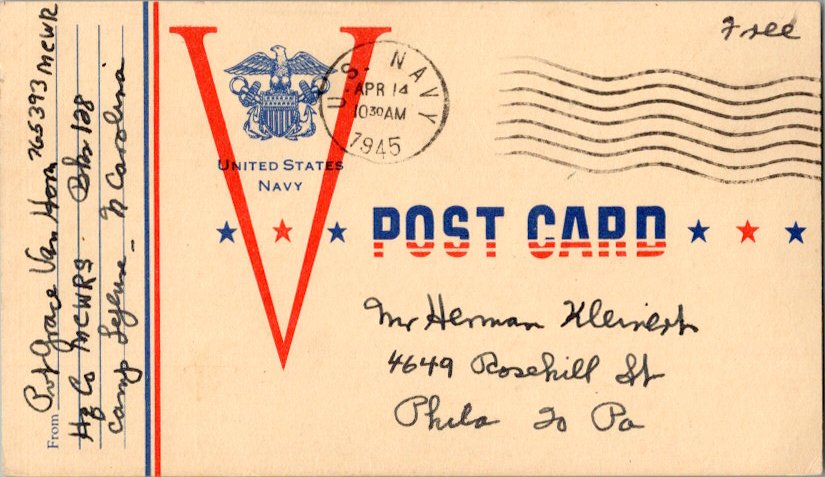 From Pvt Grace Van Horn 765393 MCWR
Hq Co MCWRS. Bks 128
Camp Lejeune - N Carolina
Free
U.S. NAVY
APR 14
10 30 AM
1945
UNITED STATES
NAVY
POST CARD
Mr Herman Kleinert
4649 Rosehill St
Phila 20 Pa